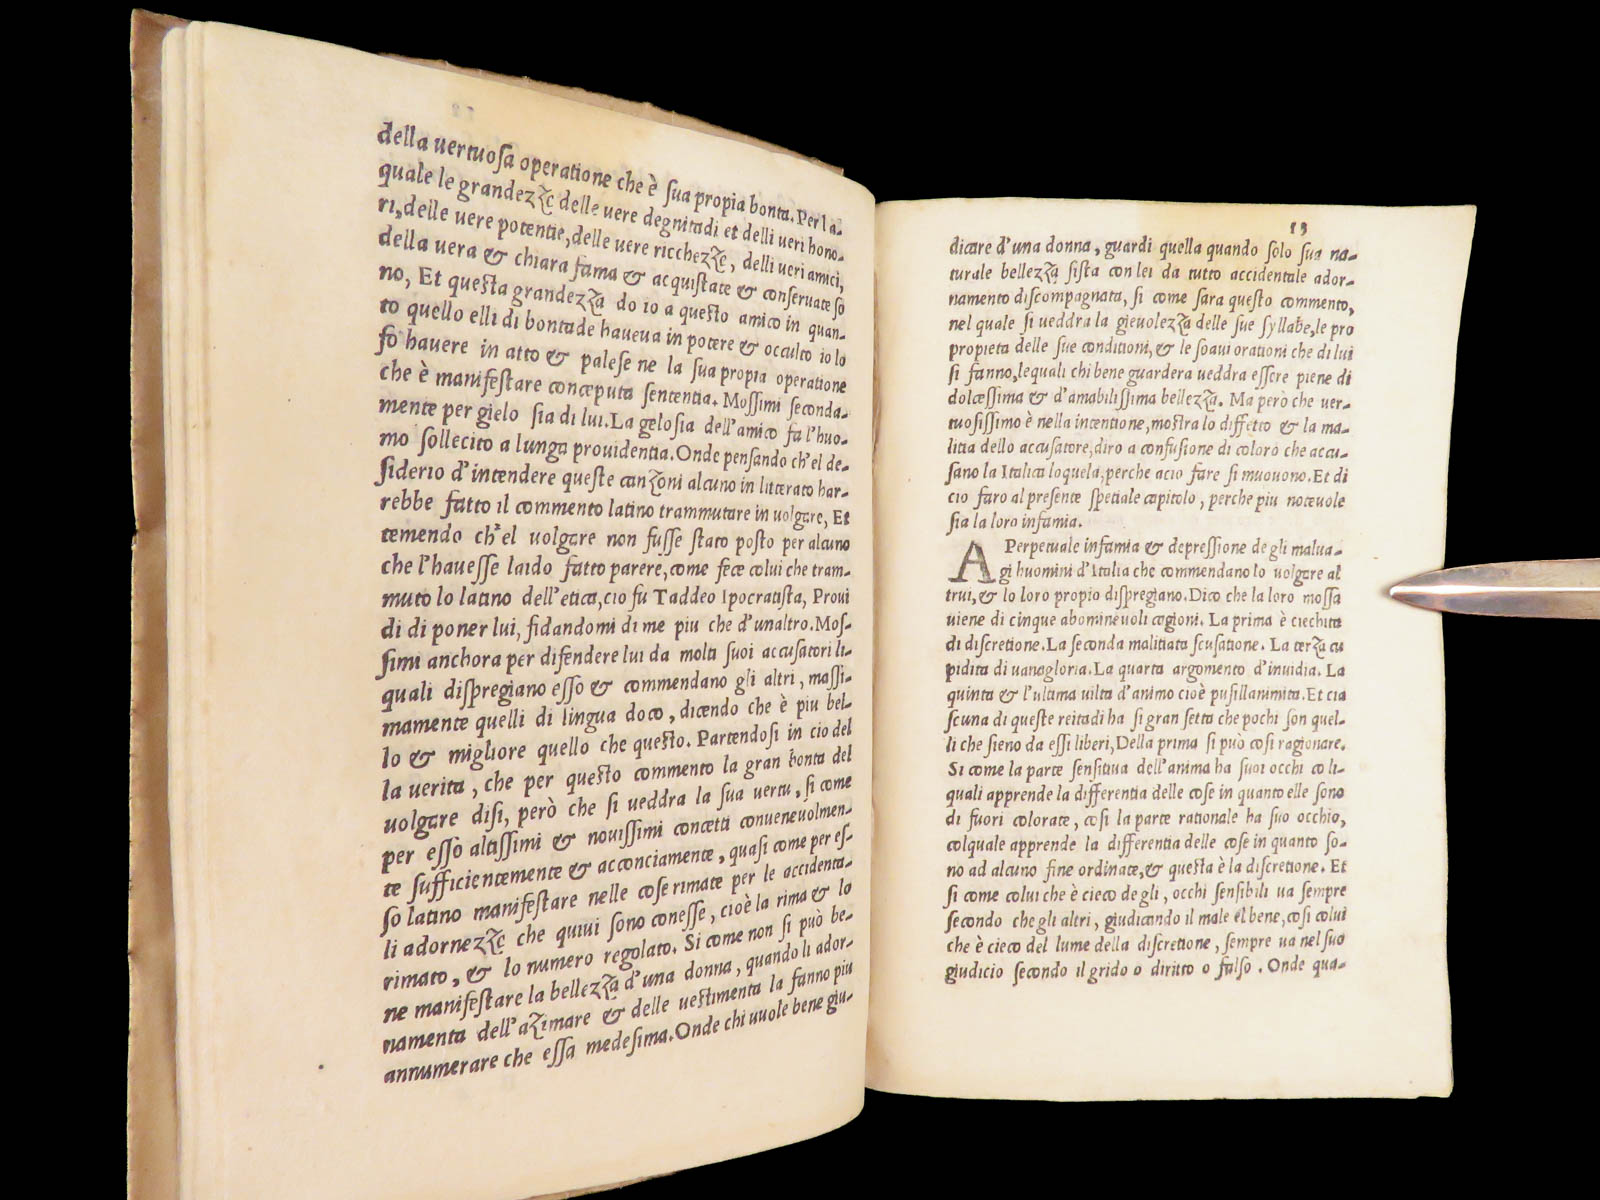 della uertuosa operatione che è sua propia bonta. Per la-
quale le grandezze delle uere degnitadi et delli ueri hono-
ri, delle uere potentie, delle uere ricchezze, delli ueri amici,
della uera & chiara fama & acquistate & conseruate so
no, Et questa grandezza do io a questo amico in quan-
to quello elli di bontade haueua in potere & occulto io lo
fo hauere in atto & palese ne la sua propia operatione
che è manifestare conceputa sententia. Mossimi seconda-
mente per gielo sia di lui. La gelosia dell'amico fa l'huo-
mo sollecito a lunga prouidentia. Onde pensando ch'el de-
siderio d'intendere queste canzoni alcuno in litterato har-
rebbe fatto il commento latino trammutare in uolgare, Et
temendo ch'el uolgare non fusse stato posto per alcuno
che l'hauesse laido fatto parere, come fece colui che tram-
muto lo latino dell'etica, cio fu Taddeo Ipocratista, Proui
di di poner lui, fidandomi di me piu che d'unaltro. Mos-
simi anchora per difendere lui da molti suoi accusatori li-
quali dispregiano esso & commendano gli altri, massi-
mamente quelli di lingua doco, dicendo che è piu bel-
lo & migliore quello che questo. Partendosi in cio del
la uerita, che per questo commento la gran bonta del
uolgare disi, però che si ueddra la sua uertu, si come
per esso altissimi & nouissimi concetti conueneuolmen-
te sufficientemente & acconciamente, quasi come per es-
so latino manifestare nelle cose rimate per le accidenta-
li adornezze che quiui sono conesse, cioè la rima & lo
rimato, & lo numero regolato. Si come non si può be-
ne manifestare la bellezza d'una donna, quando li ador-
namenta dell'azimare & delle uestimenta la fanno piu
annumerare che essa medesima. Onde chi uuole bene giu-
13
dicare d'una donna, guardi quella quando solo sua na-
turale bellezza sista con lei da tutto accidentale ador-
namento discompagnata, si come sara questo commento,
nel quale si ueddra la gieuolezza delle sue syllabe, le pro
propieta delle sue conditioni, & le soaui orationi che di lui
si fanno, lequali chi bene guardera ueddra essere piene di
dolcessima & d'amabilissima bellezza. Ma però che uer-
tuosissimo è nella intentione, mostra lo diffetto & la ma-
litia dello accusatore, diro a confusione di coloro che accu-
sano la Italica loquela, perche acio fare si muouono. Et di
cio faro al presente spetiale capitolo, perche piu noteuole
sia la loro infamia.
A Perpetuale infamia & depressione de gli malua-
gi huomini d'Italia che commendano lo uolgare al
trui, & lo loro propio dispregiano. Dico che la loro mossa
uiene di cinque abomineuoli cagioni. La prima è ciechita
di discretione. La seconda malitiata scusatione. La terza cu
pidita di uanagloria. La quarta argomento d'inuidia. La
quinta & l'ultima uilta d'animo cioè pusillanimita. Et cia
scuna di queste reitadi ha si gran setta che pochi son quel-
li che sieno da essi liberi, Della prima si può cosi ragionare.
Si come la parte sensitiua dell'anima ha suoi occhi co li-
quali apprende la differentia delle cose in quanto elle sono
di fuori colorate, cosi la parte rationale ha suo occhio,
colquale apprende la differentia delle cose in quanto so-
no ad alcuno fine ordinate, & questa è la discretione. Et
si come colui che è cieco de gli, occhi sensibili ua sempre
secondo che gli altri, giudicando il male el bene, cosi colui
che è cieco del lume della discretione, sempre ua nel suo
giudicio secondo il grido o diritto o falso. Onde qua-